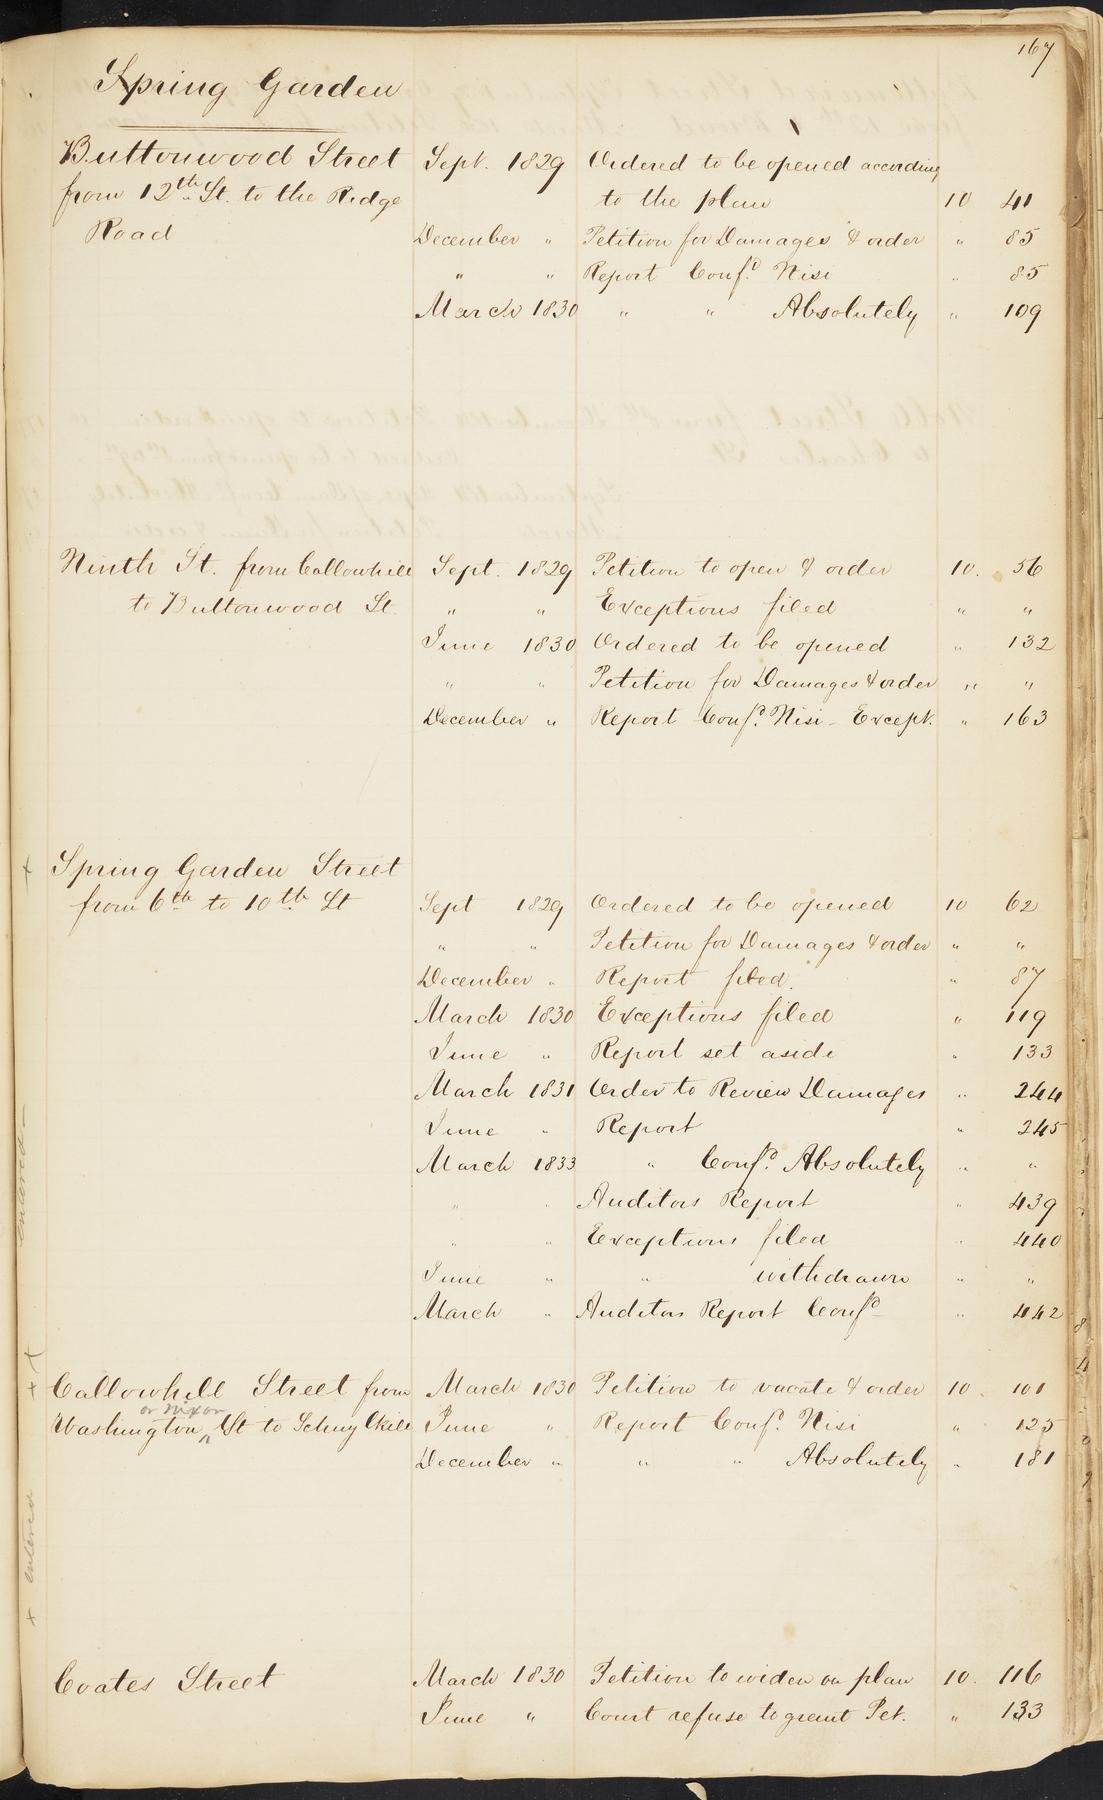 167
Spring Garden
Buttonwood Street Sept. 1829 Ordered to be opened according
from 12th St. to the Ridge to the plan 10 41
Road December " Petition for Damages & order " 85
" " Report Conf.d Nisi " 85
March 1830 " " Absolutely " 109
Ninth St. from Callowhill Sept. 1829 Petition to open & order 10. 56
to Buttonwood St. " " Exceptions filed " "
June 1830 Ordered to be opened " 132
" " Petition for Damages & order " "
December " Report Conf.d Nisi - Except. " 163
+ Spring Garden Street
from 6th to 10th St Sept 1829 Ordered to be opened 10 62
" " Petition for Damages & order " "
December " Report filed. " 87
March 1830 Exceptions filed " 119
June " Report set aside " 133
March 1831 Order to Review Damages " 244
June " Report " 245
March 1833 " Conf.d Absolutely " "
" " Auditors Report " 439
" " Exceptions filed " 440
June " " withdrawn " "
March " Auditors Report Conf.d " 442
entered
+ +
Callowhill Street from March 1830 Petition to vacate & order 10. 101
or Nixon
Washington ^ St to Schuylkill June " Report Conf.d Nisi " 125
December " " " Absolutely " 181
+ entered
Coates Street March 1830 Petition to widen on plan 10. 116
June " Court refuse to grant Pet. " 133